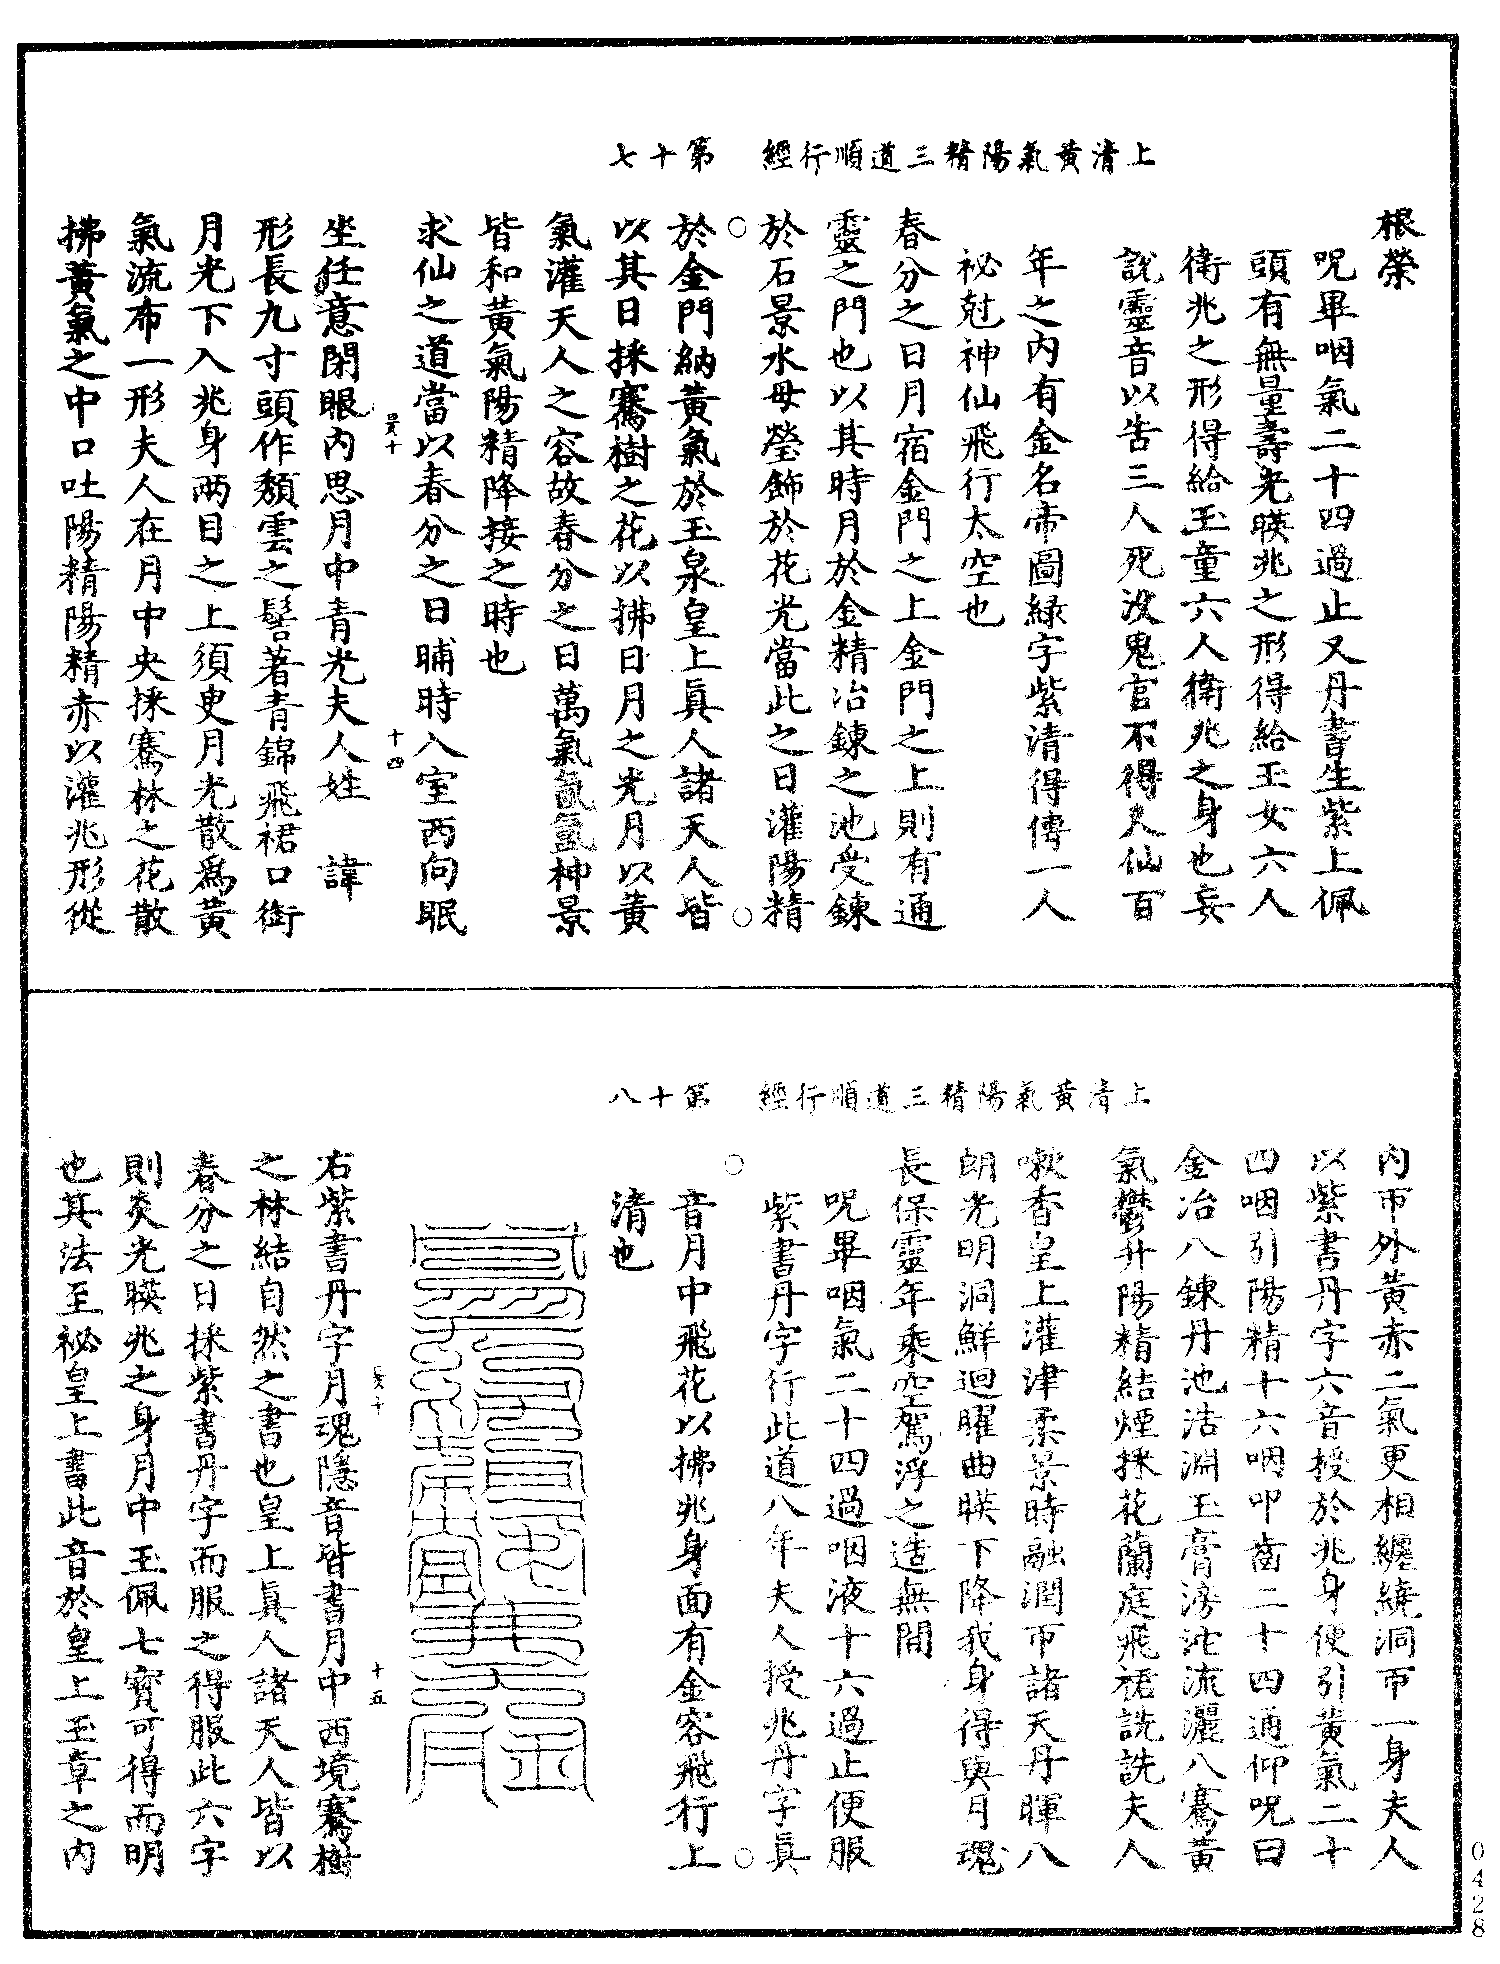 上清黃氣陽精三道順行經　第十七
根榮
呪畢咽氣二十四過止又丹書生紫上佩
頭有無量壽光暎兆之形得給玉女六人
衛兆之形得給玉童六人衛兆之身也妄
說靈音以告三人死沒鬼官不得久仙百
年之內有金名帝圖綠字紫清得傳一人
祕尅神仙飛行太空也
春分之日月宿金門之上金門之上則有通
靈之門也以其時月於金精冶鍊之池受鍊
於石景水母瑩飾於花光當此之日灌陽精
於金門納黃氣於玉泉皇上眞人諸天人皆
以其日採騫樹之花以拂日月之光月以黃
氣灌天人之容故春分之日萬氣氤氳神景
皆和黃氣陽精降接之時也
求仙之道當以春分之日晡時入室西向眠
坐任意閉眼內思月中青光夫人姓　諱
形長九寸頭作頹雲之髻著青錦飛裙口銜
月光下入兆身兩目之上須臾月光散爲黃
氣流布一形夫人在月中央採騫林之花散
拂黃氣之中口吐陽精陽精赤以灌兆形從
十四
上清黃氣陽精三道順行經　第十八
內帀外黃赤二氣更相纏繞洞帀一身夫人
以紫書丹字六音授於兆身便引黃氣二十
四咽引陽精十六咽叩齒二十四通仰呪曰
金冶八鍊丹池浩淵玉膏滂沱流灑八騫黃
氣鬱升陽精結煙採花蘭庭飛裙詵詵夫人
嗽香皇上灌津柔景時融潤帀諸天丹暉八
朗光明洞鮮迴曜曲暎下降我身得與月魂
長保靈年乘空駕浮之造無間
呪畢咽氣二十四過咽液十六過止便服
紫書丹字行此道八年夫人授兆丹字眞
音月中飛花以拂兆身面有金容飛行上
清也
右紫書丹字月魂隱音皆書月中西境騫樹
之林結自然之書也皇上眞人諸天人皆以
春分之日採紫書丹字而服之得服此六字
則炎光暎兆之身月中玉佩七寶可得而明
也其法至祕皇上書此音於皇上玉章之內
十五
0428